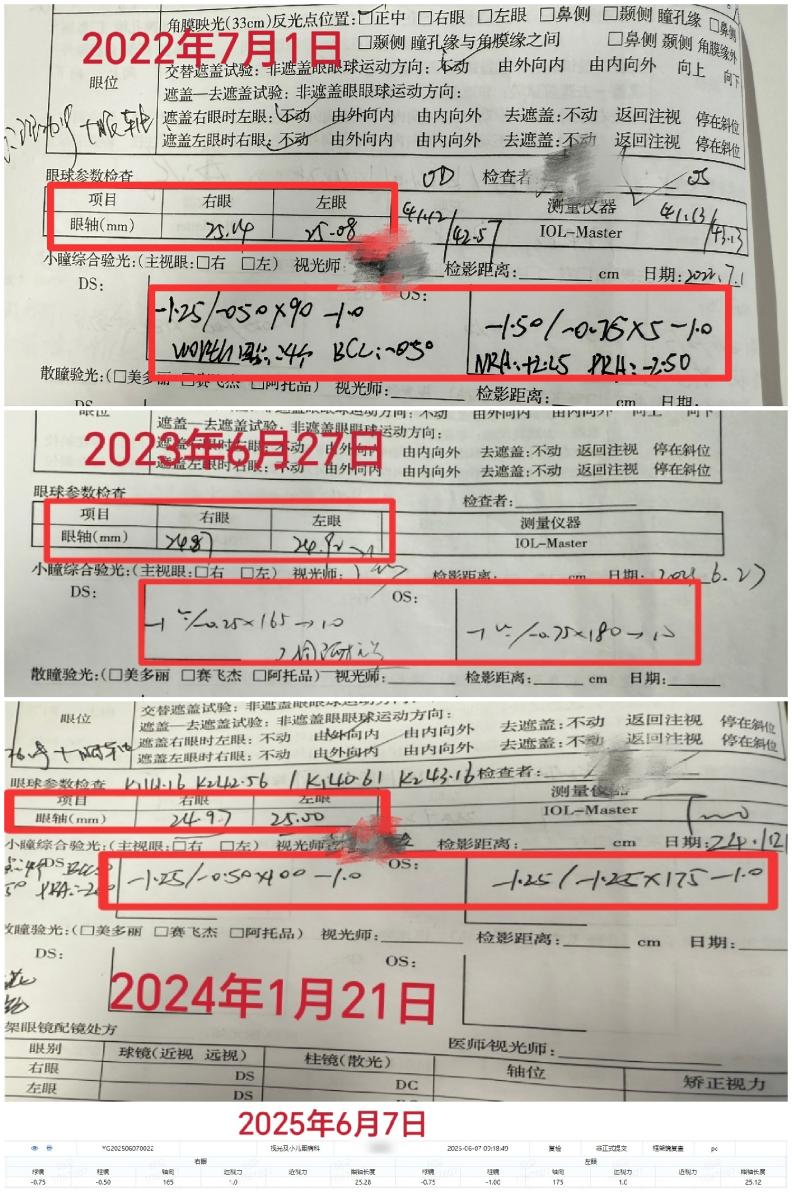 角膜映光(33cm)反光点位置:□正中 □右眼 □左眼 □鼻侧 □颞侧 瞳孔缘 □鼻侧
2022年7月1日
□颞侧 瞳孔缘与角膜缘之间 □鼻侧 颞侧 角膜缘外
眼位
交替遮盖试验: 非遮盖眼眼球运动方向: 不动 由外向内 由内向外 向上 向下
遮盖—去遮盖试验: 非遮盖眼眼球运动方向:
遮盖右眼时左眼: 不动 由外向内 由内向外 去遮盖:不动 返回注视 停在斜位
遮盖左眼时右眼: 不动 由外向内 由内向外 去遮盖:不动 返回注视 停在斜位
眼球参数检查 OD 检查者: OS
项目 右眼 左眼 41.12/42.57 测量仪器 41.13/43.13
眼轴(mm) 25.14 25.08 IOL-Master
小瞳综合验光:(主视眼:□右 □左) 视光师 检影距离: cm 日期: 2022.7.1
DS: OS:
-1.25/-0.50×90 -1.0 -1.50/-0.75×5 -1.0
BCC:-0.50 NRA:+2.25 PRA:-2.50
散瞳验光:(□美多丽 □赛飞杰 □阿托品) 视光师: 检影距离: cm 日期:
DS OS:
眼位 遮盖—去遮盖试验: 非遮盖眼眼球运动方向:
2023年6月27日
遮盖右眼时左眼: 不动 由外向内 由内向外 去遮盖:不动 返回注视 停在斜位
遮盖左眼时右眼: 不动 由外向内 由内向外 去遮盖:不动 返回注视 停在斜位
眼球参数检查 检查者:
项目 右眼 左眼 测量仪器
眼轴(mm) 24.87 24.92 IOL-Master
小瞳综合验光:(主视眼:□右 □左) 视光师: 检影距离: cm 日期: 2023.6.27
DS: OS:
/-0.25×165→1.0 /-0.75×180→1.0
散瞳验光:(□美多丽 □赛飞杰 □阿托品) 视光师: 检影距离: cm 日期:
眼位
交替遮盖试验: 非遮盖眼眼球运动方向: 不动 由外向内 由内向外
遮盖—去遮盖试验: 非遮盖眼眼球运动方向:
遮盖右眼时左眼: 不动 由外向内 由内向外 去遮盖:不动 返回注视 停在斜位
遮盖左眼时右眼: 不动 由外向内 由内向外 去遮盖:不动 返回注视 停在斜位
眼球参数检查 K141.16 K242.56 / K140.61 K243.16 检查者:
项目 右眼 左眼 测量仪器
眼轴(mm) 24.97 25.00 IOL-Master
小瞳综合验光:(主视眼:□右 □左) 视光师 检影距离: cm 日期: 24.1.21
DS OS:
-1.25/-0.50×100 -1.0 -1.25/-1.25×175-1.0
散瞳验光:(□美多丽 □赛飞杰 □阿托品) 视光师: 检影距离: cm 日期:
DS: OS:
2024年1月21日
架眼镜配镜处方 医师/视光师:
眼别 球镜(近视 远视) 柱镜(散光) 轴位 矫正视力
右眼 DS DC
左眼 DS
2025年6月7日
YG202506070022 视光及小儿眼病科 2025-06-07 09:18:49 复检 非正式提交 框架镜复查 pc
右眼 左眼
球镜 柱镜 轴向 远视力 近视力 眼轴长度 球镜 柱镜 轴向 远视力 近视力 眼轴长度
-0.75 -0.50 165 1.0 25.28 -0.75 -1.00 175 1.0 25.12